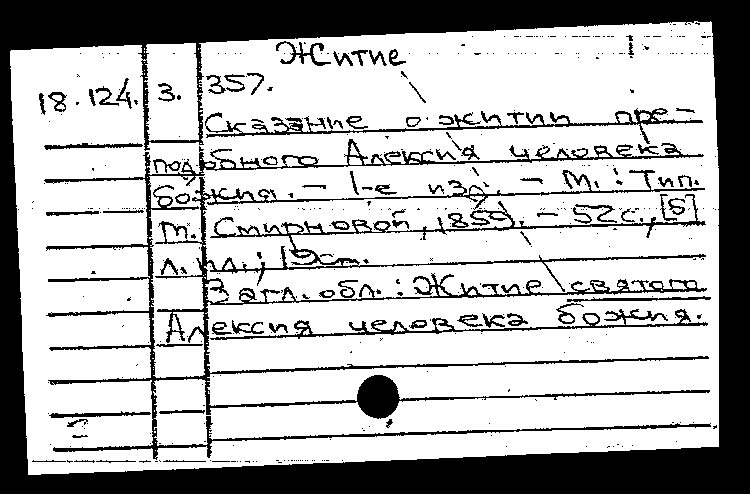 Житие
18.124. 3. 357.
Сказание о житии пре-
подобного Алексия человека
божия. – 1-е изд. – М.: Тип.
т. Смирновой, 1859. – 52с., [5]
л. ил.; 19см.
Загл. обл.: Житие святого
Алексия человека божия.